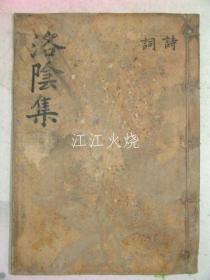 洛陰集
詩
詞
江江火烧